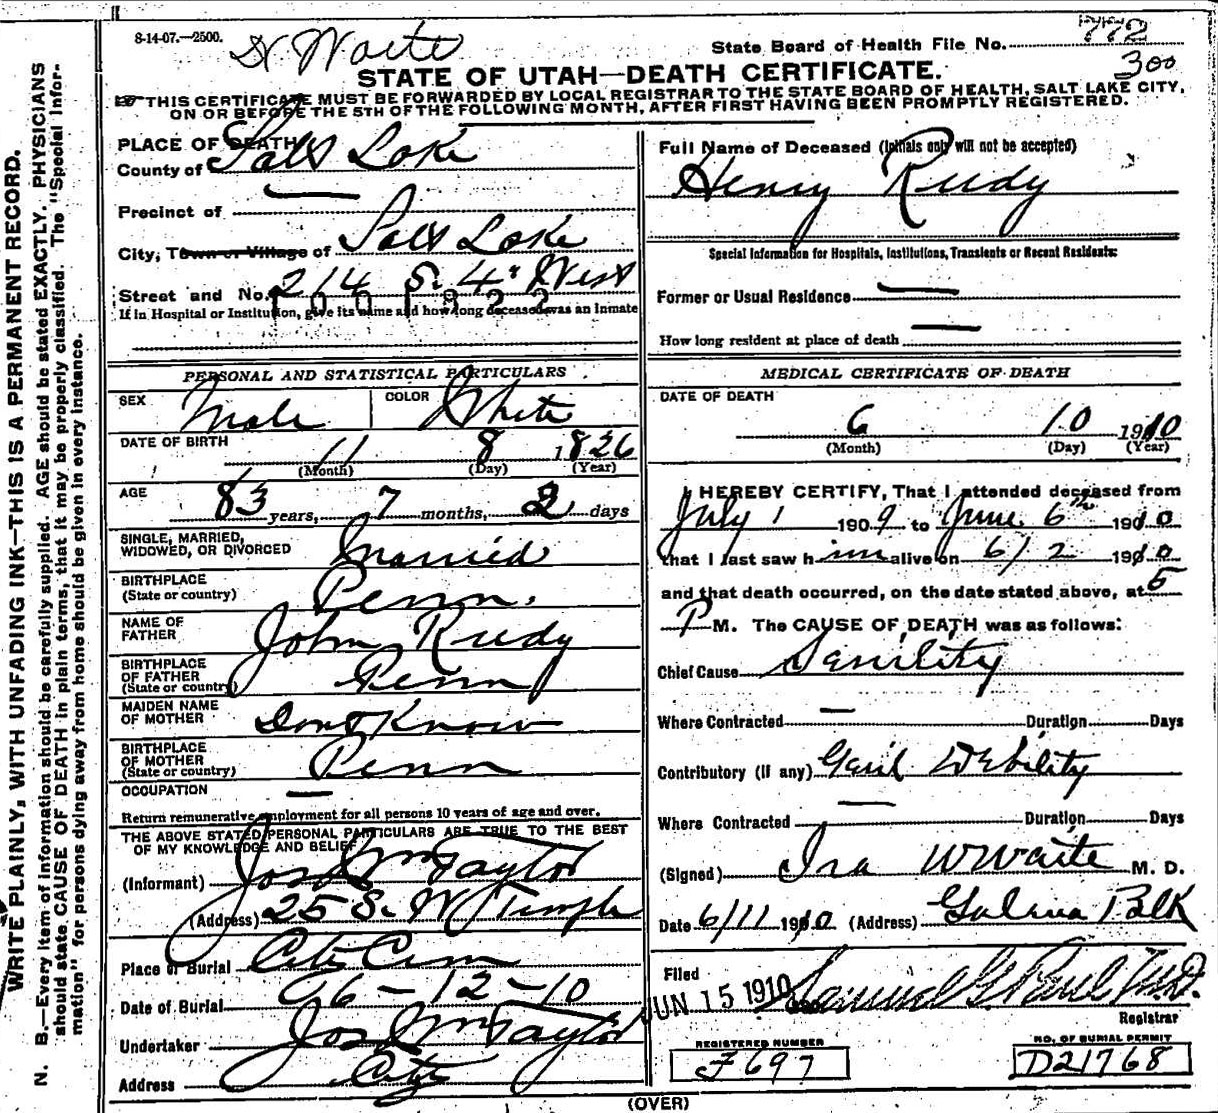 8-14-07.—2500.
Dr Waite
State Board of Health File No. 772
300
STATE OF UTAH—DEATH CERTIFICATE.
THIS CERTIFICATE MUST BE FORWARDED BY LOCAL REGISTRAR TO THE STATE BOARD OF HEALTH, SALT LAKE CITY,
ON OR BEFORE THE 5TH OF THE FOLLOWING MONTH, AFTER FIRST HAVING BEEN PROMPTLY REGISTERED.
WRITE PLAINLY, WITH UNFADING INK—THIS IS A PERMANENT RECORD.
N. B.—Every item of information should be carefully supplied. AGE should be stated EXACTLY. PHYSICIANS
should state CAUSE OF DEATH in plain terms, that it may be properly classified. The "Special Infor-
mation" for persons dying away from home should be given in every instance.
PLACE OF DEATH
County of Salt Lake
Precinct of
City, Town or Village of Salt Lake
Street and No. 214 S. 4" West
1001322
If in Hospital or Institution, give its name and how long deceased was an inmate
PERSONAL AND STATISTICAL PARTICULARS
SEX Male COLOR White
DATE OF BIRTH
11 8 1826
(Month) (Day) (Year)
AGE
83 years, 7 months, 2 days
SINGLE, MARRIED,
WIDOWED, OR DIVORCED Married
BIRTHPLACE
(State or country) Penn.
NAME OF
FATHER John Rudy
BIRTHPLACE
OF FATHER
(State or country) Penn
MAIDEN NAME
OF MOTHER Dont Know
BIRTHPLACE
OF MOTHER
(State or country) Penn
OCCUPATION —
Return remunerative employment for all persons 10 years of age and over.
THE ABOVE STATED PERSONAL PARTICULARS ARE TRUE TO THE BEST
OF MY KNOWLEDGE AND BELIEF
(Informant) Jos Wm Taylor
(Address) 25 S. W Temple
Place of Burial City Cem
Date of Burial 6-12-10
Undertaker Jos Wm Taylor
Address City
Full Name of Deceased (Initials only will not be accepted)
Henry Rudy
Special Information for Hospitals, Institutions, Transients or Recent Residents:
Former or Usual Residence —
How long resident at place of death —
MEDICAL CERTIFICATE OF DEATH
DATE OF DEATH
6 10 1910
(Month) (Day) (Year)
I HEREBY CERTIFY, That I attended deceased from
July 1 1909 to June 6th 1910
that I last saw him alive on 6/2 1910
and that death occurred, on the date stated above, at 5
P M. The CAUSE OF DEATH was as follows:
Chief Cause Senility
Where Contracted — Duration Days
Contributory (if any) Genl Debility
Where Contracted — Duration Days
(Signed) Ira W Waite M. D.
Date 6/11 1910 (Address) Galena Blk
Filed
JUN 15 1910 Samuel G. Paul M.D.
Registrar
REGISTERED NUMBER
F697
NO. OF BURIAL PERMIT
D21768
(OVER)